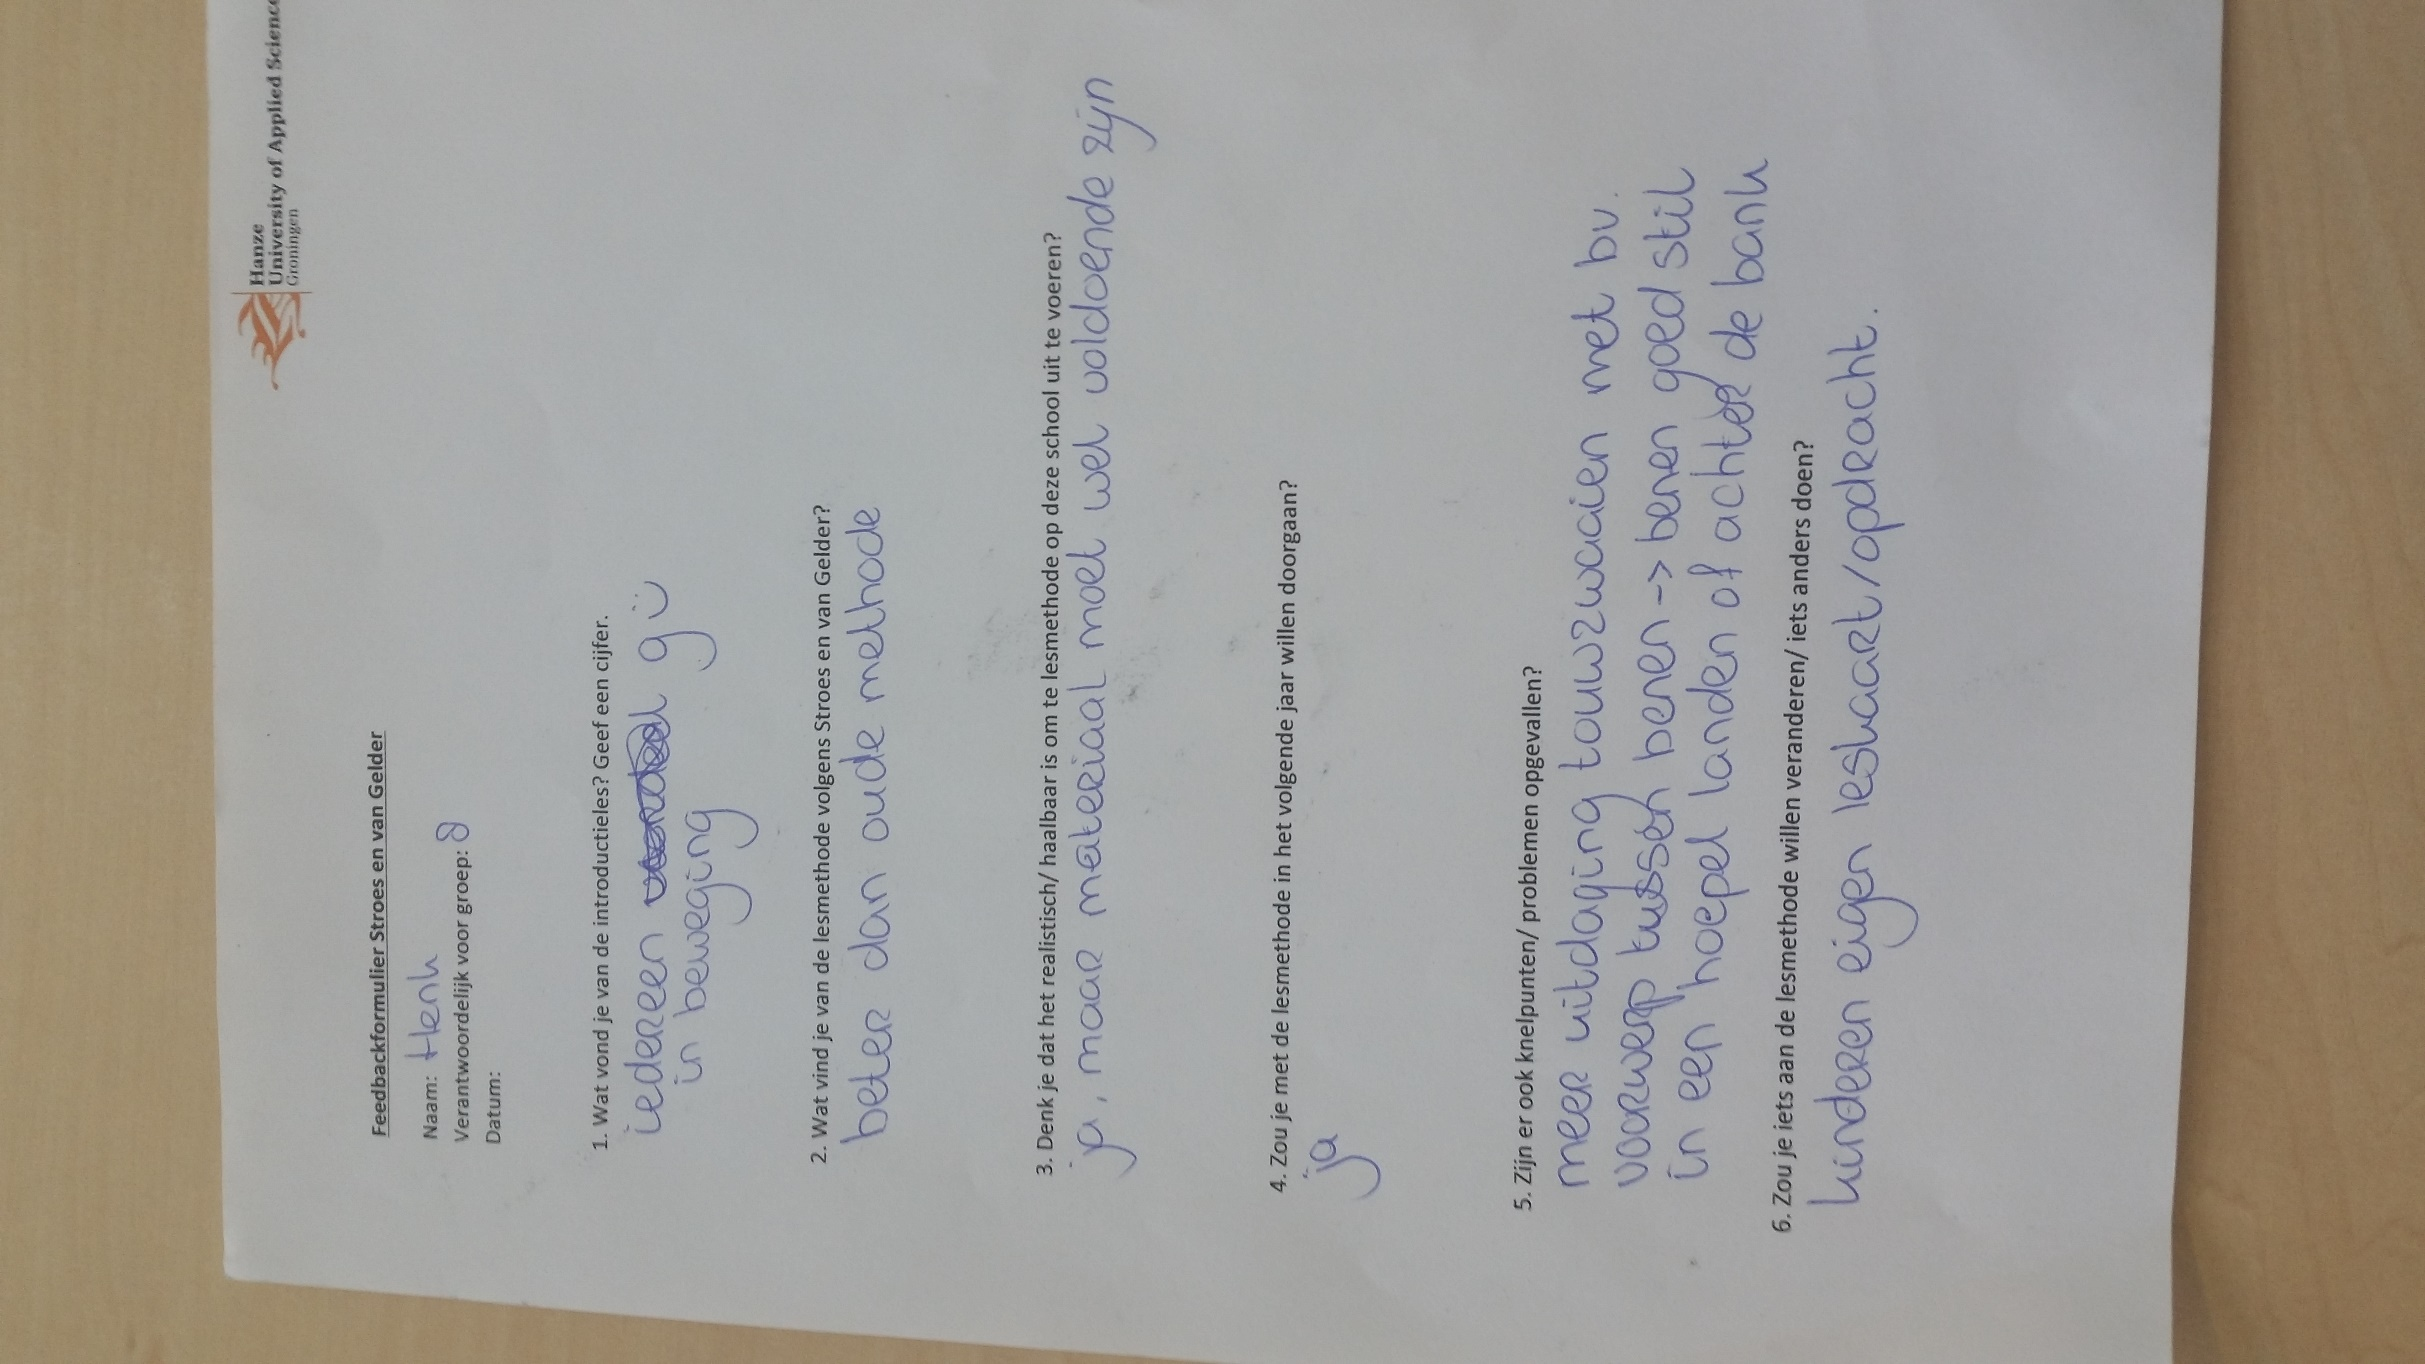 Hanze
University of Applied Science
Groningen
Feedbackformulier Stroes en van Gelder
Naam: Henk
Verantwoordelijk voor groep: 8
Datum:
1. Wat vond je van de introductieles? Geef een cijfer.
iedereen 9 ü
in beweging
2. Wat vind je van de lesmethode volgens Stroes en van Gelder?
beter dan oude methode
3. Denk je dat het realistisch/ haalbaar is om te lesmethode op deze school uit te voeren?
ja, maar materiaal moet wel voldoende zijn
4. Zou je met de lesmethode in het volgende jaar willen doorgaan?
ja
5. Zijn er ook knelpunten/ problemen opgevallen?
meer uitdaging touwzwaaien met bv.
voorwerp tussen benen -> benen goed stil
in een hoepel landen of achter de bank
6. Zou je iets aan de lesmethode willen veranderen/ iets anders doen?
kinderen eigen leskaart/opdracht.